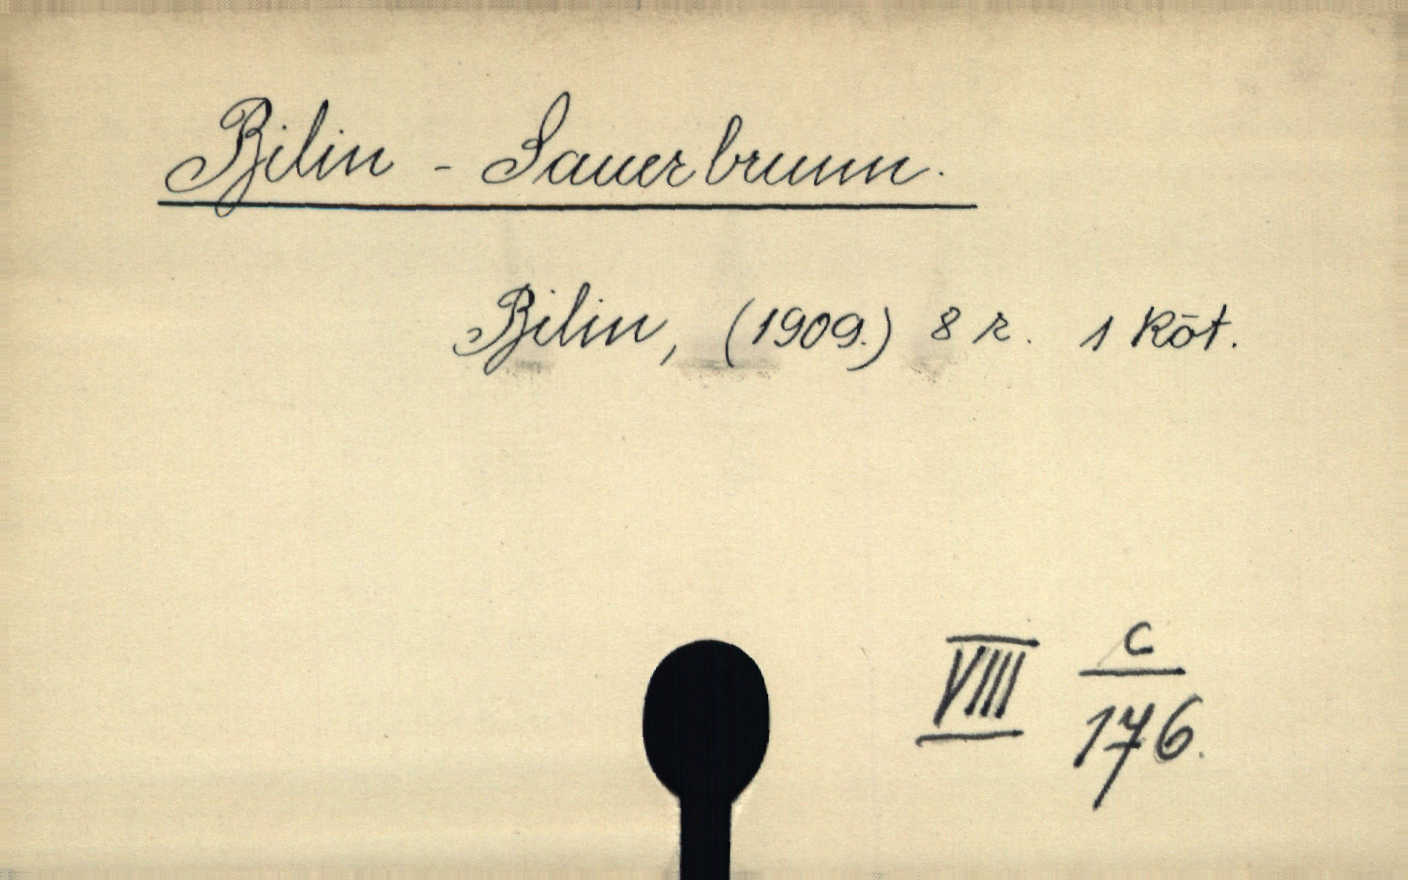 Bilin - Sauerbrunn.
Bilin, (1909.) 8 r. 1 Köt.
VIII c/176.